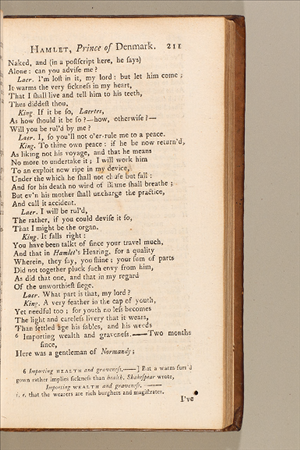 HAMLET, Prince of Denmark. 211
Naked, and (in a poſtſcript here, he ſays)
Alone: can you adviſe me?
Laer. I'm loſt in it, my lord: but let him come;
It warms the very ſickneſs in my heart,
That I ſhall live and tell him to his teeth,
Thus diddeſt thou.
King. If it be ſo, Laertes,
As how ſhould it be ſo?—how, otherwiſe?—
Will you be rul'd by me?
Laer. I, ſo you'll not o'er-rule me to a peace.
King. To thine own peace: if he be now return'd,
As liking not his voyage, and that he means
No more to undertake it; I will work him
To an exploit now ripe in my device,
Under the which he ſhall not chuſe but fall:
And for his death no wind of blame ſhall breathe;
But ev'n his mother ſhall uncharge the practice,
And call it accident.
Laer. I will be rul'd,
The rather, if you could deviſe it ſo,
That I might be the organ.
King. It falls right:
You have been talkt of ſince your travel much,
And that in Hamlet's Hearing, for a quality
Wherein, they ſay, you ſhine: your ſum of parts
Did not together pluck ſuch envy from him,
As did that one, and that in my regard
Of the unworthieſt ſiege.
Laer. What part is that, my lord?
King. A very feather in the cap of youth,
Yet needful too; for youth no leſs becomes
The light and careleſs livery that it wears,
Than ſettled age his ſables, and his weeds
6 Importing wealth and graveneſs.——Two months
ſince,
Here was a gentleman of Normandy;
6 Importing HEALTH and graveneſs.——] But a warm furr'd
gown rather implies ſickneſs than health. Shakeſpear wrote,
Importing WEALTH and graveneſs.——
i. e. that the wearers are rich burghers and magiſtrates.
I've